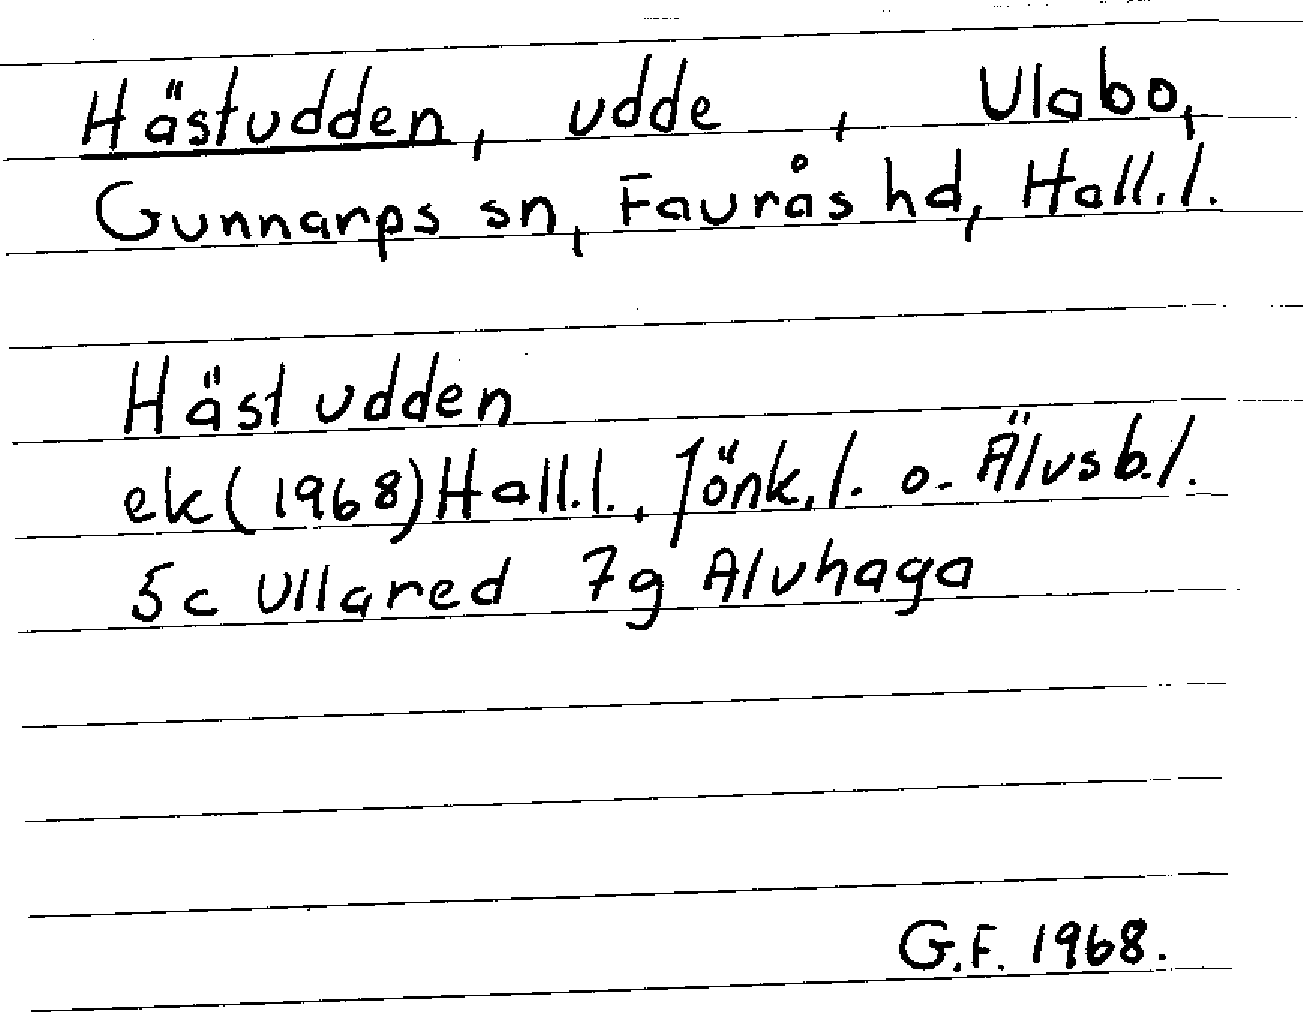 Hästudden, udde , Ulabo,
Gunnarps sn, Faurås hd, Hall.l.
Hästudden
ek(1968)Hall.l., Jönk.l. o. Älvsb.l.
5c Ullared 7g Alvhaga
G.F. 1968.